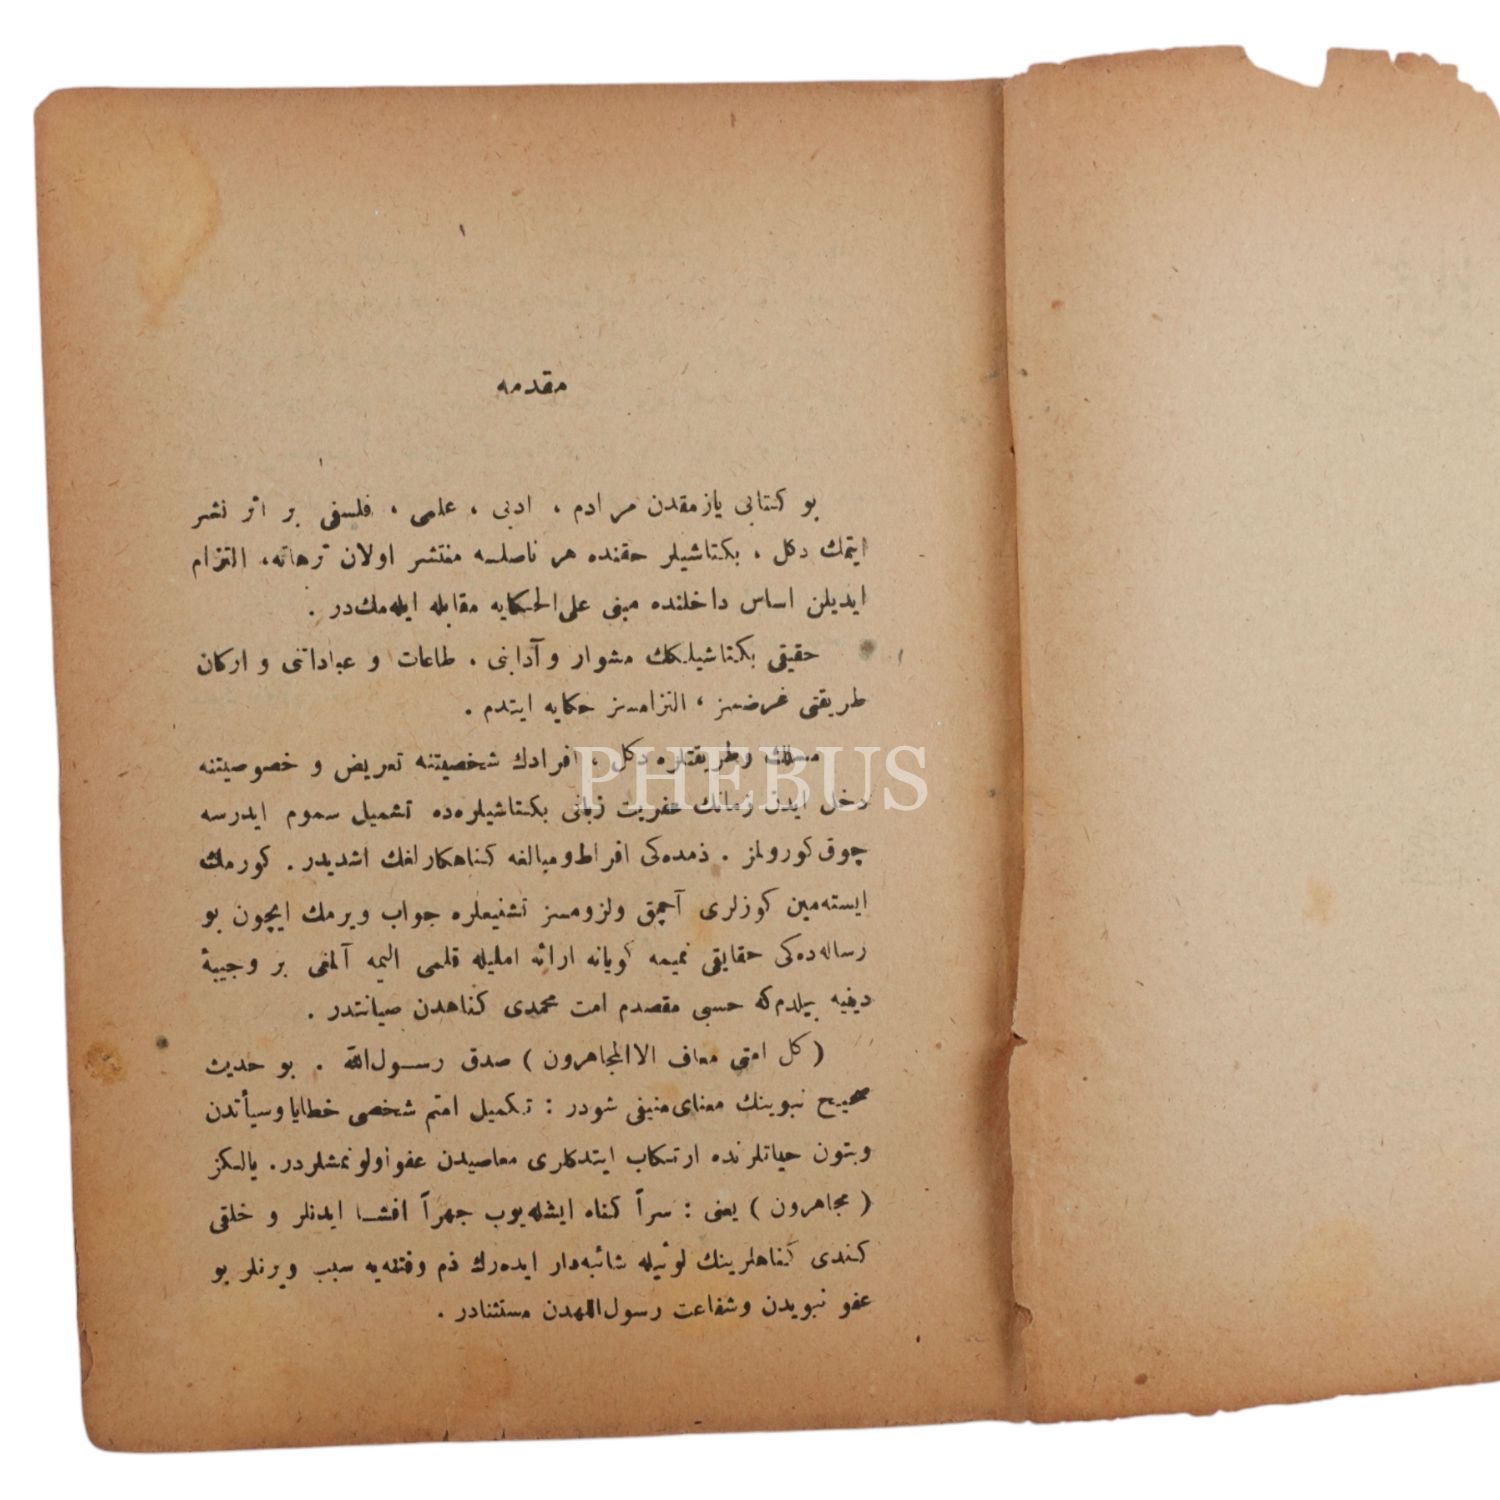 مقدمه
بو کتابی یازمقدن مرادم ، ادبی ، علمی ، فلسفی بر اثر نشر
ایتمك دکل ، بکتاشیلر حقنده هر ناصلسه منتشر اولان ترهاته، التزام
ایدیلن اساس داخلنده مبنی علی‌الحکایه مقابله ایله‌مك‌در .
حقیقی بکتاشیلکك مشوار و آدابنی . طاعات و عباداتنی و ارکان
طریقتی غرضسز ، التزامسز حکایه ایتدم .
مسلك وطریقتلره دکل ، افرادك شخصیتنه تعریض و خصوصیتنه
دخل ایدن زمانك عفریت زبانی بکتاشیلره‌ده تشمیل سموم ایدرسه
چوق کورولمز . ذمده‌کی افراط ومبالغه کناهکارلغك اشدیدر . کورمك
ایسته‌مین کوزلری آچمق ولزومسز تشنیعلره جواب ویرمك ایچون بو
رساله‌ده‌کی حقایقی نمیمه کویانه ارائه املیله قلمی الیمه آلمغی بر وجیبهٔ
دینیه بیلدم‌که حسبی مقصدم امت محمدی کناهدن صیانتدر .
( کل امتی معاف الا المجاهرون ) صدق رسـول‌الله . بو حدیث
صحیح نبوینك معنای‌منیفی شودر : تکمیل امتم شخصی خطایا وسیأتدن
وبتون حیاتلرنده ارتکاب ایتدکلری معاصیدن عفو اولونمشلردر. یالکز
( مجاهرون ) یعنی : سراً کناه ایشله‌یوب جهراً افشـا ایدنلر و خلقی
کندی کناهلرینك لوثیله شائبه‌دار ایده‌رك ذم وفتنه‌یه سبب ویرنلر بو
عفو نبویدن وشفاعت رسول‌اللهدن مستثنادر .
PHEBUS